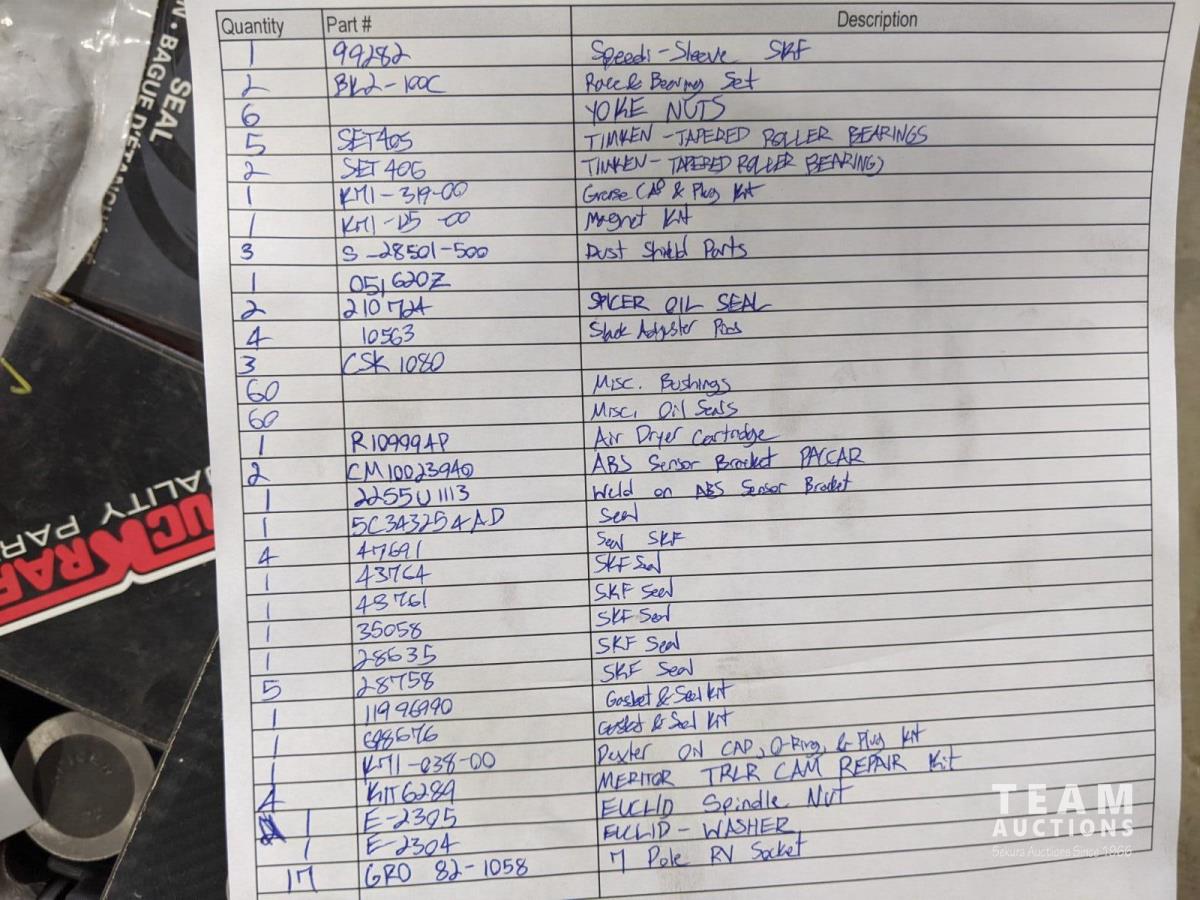 Quantity Part # Description
1 99282 Speedi-Sleeve SKF
2 BK2-100C Race & Bearing Set
6 YOKE NUTS
5 SET405 TIMKEN - TAPERED ROLLER BEARINGS
2 SET 406 TIMKEN - TAPERED ROLLER BEARINGS
1 K71-319-00 Grease CAP & Plug Kit
1 K71-125-00 Magnet Kit
3 S-28501-500 Dust Shield Parts
1 051620Z
2 210724 SPICER OIL SEAL
4 10563 Slack Adjuster Pins
3 CSK 1080
60 Misc. Bushings
60 Misc. Oil Seals
1 R109994P Air Dryer Cartridge
2 CM10023940 ABS Sensor Bracket PACCAR
1 2255U1113 Weld on ABS Sensor Bracket
1 5C343254AD Seal
4 47691 Seal SKF
1 43764 SKF Seal
1 43761 SKF Seal
1 35058 SKF Seal
1 28635 SKF Seal
5 28758 SKF Seal
1 11996990 Gasket & Seal Kit
1 698676 Gasket & Seal Kit
1 K71-038-00 Dexter Oil CAP, O-Ring, & Plug Kit
4 KIT6284 MERITOR TRLR CAM REPAIR Kit
1 E-2305 EUCLID Spindle Nut
1 E-2304 EUCLID - WASHER
17 GRO 82-1058 7 Pole RV Socket
SEAL
N • BAGUE D'ÉTANCH
UCKRAF
ALITY PAR
SPICER
TEAM
AUCTIONS
Sekura Auctions Since 1966